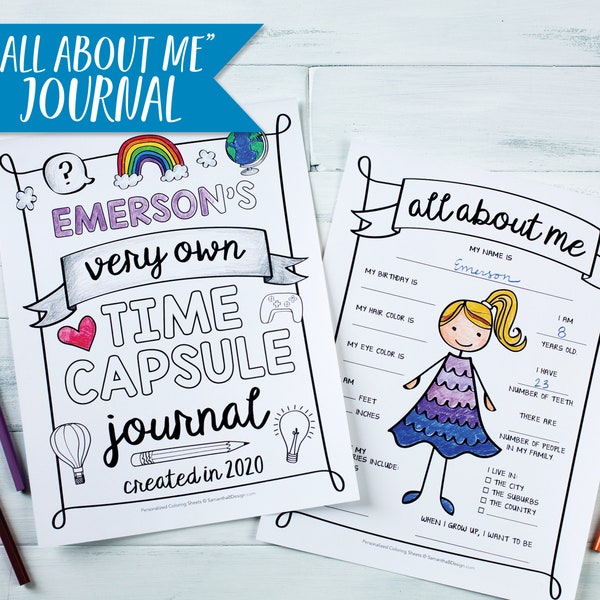 ALL ABOUT ME”
JOURNAL
?
EMERSON'S
very own
TIME
CAPSULE
journal
created in 2020
Personalized Coloring Sheets © SamanthaBDesign.com
all about me
MY NAME IS
Emerson
MY BIRTHDAY IS
MY HAIR COLOR IS
MY EYE COLOR IS
AM
FEET
INCHES
MY
RIES INCLUDE:
I AM
8
YEARS OLD.
I HAVE
23
NUMBER OF TEETH
THERE ARE
NUMBER OF PEOPLE
IN MY FAMILY
I LIVE IN:
THE CITY
THE SUBURBS
THE COUNTRY
WHEN I GROW UP, I WANT TO BE
Personalized Coloring Sheets © SamanthaBDesign.com